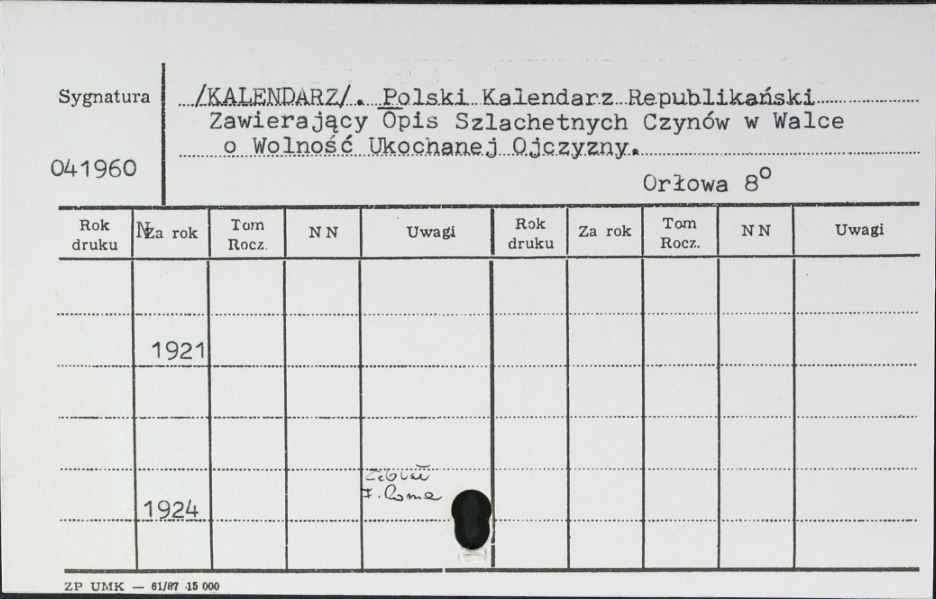 Sygnatura
/KALENDARZ/. Polski Kalendarz Republikański
Zawierający Opis Szlachetnych Czynów w Walce
o Wolność Ukochanej Ojczyzny.
041960
Orłowa 8°
Rok druku N Za rok Tom Rocz. N N Uwagi Rok druku Za rok Tom Rocz. N N Uwagi
1921
Zebrał
1924
ZP UMK — 61/87 15 000